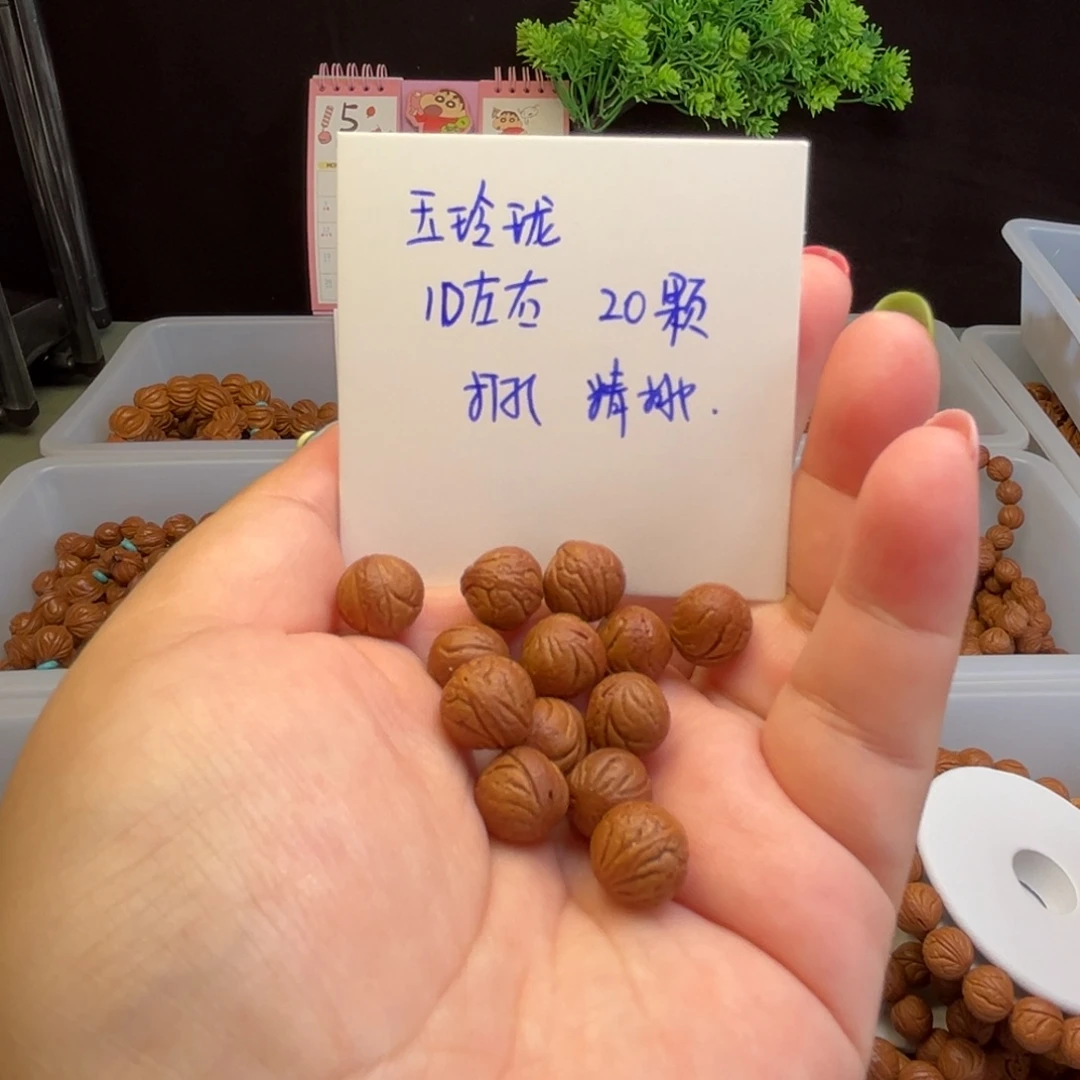 5
玉玲珑
10左右 20颗
打孔 精挑.